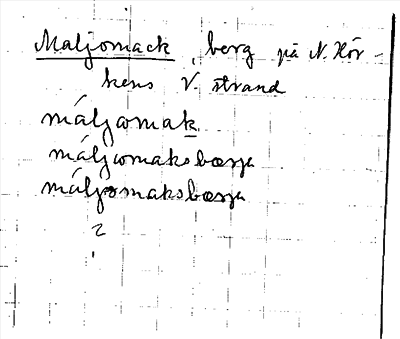 Maljomack, berg på N. Hör-
kens V. strand
máljωmak
máljωmaksbœrja
máljomaksbœrja
2